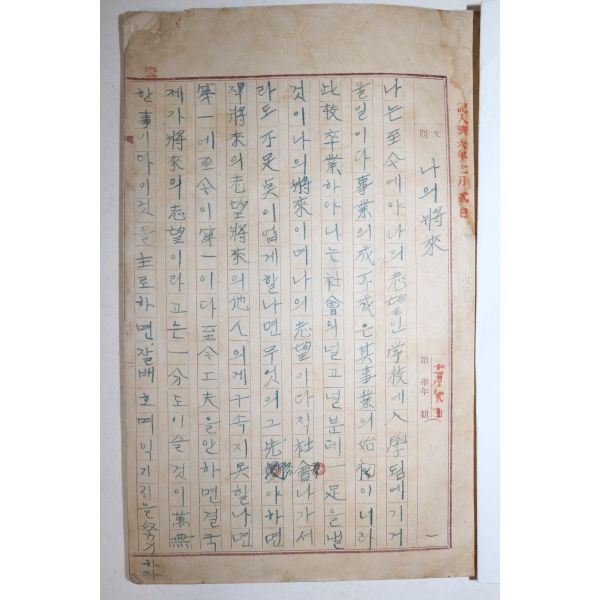 記入濟 六年十一月貳日
文題 나의將來
第 學年 組 一
나는至今에야나의志望인學校에入學됨에기거
울일이다事業의成不成은其事業의始初이니라
此校卒業하야나는社會의널고널분데一足을낼
것이나의將來이며나의志望이다직社會나가서
라도不足点이업게할나면무엇의그先 야하면
將來의志望將來의他人의게구속지못할나면
第一에至今이第一이다至今工夫를안하면결국
제가將來의志望이라고는一分도이슬것이萬無
한事이다이것을主로하면잘배호며익기를努力하자